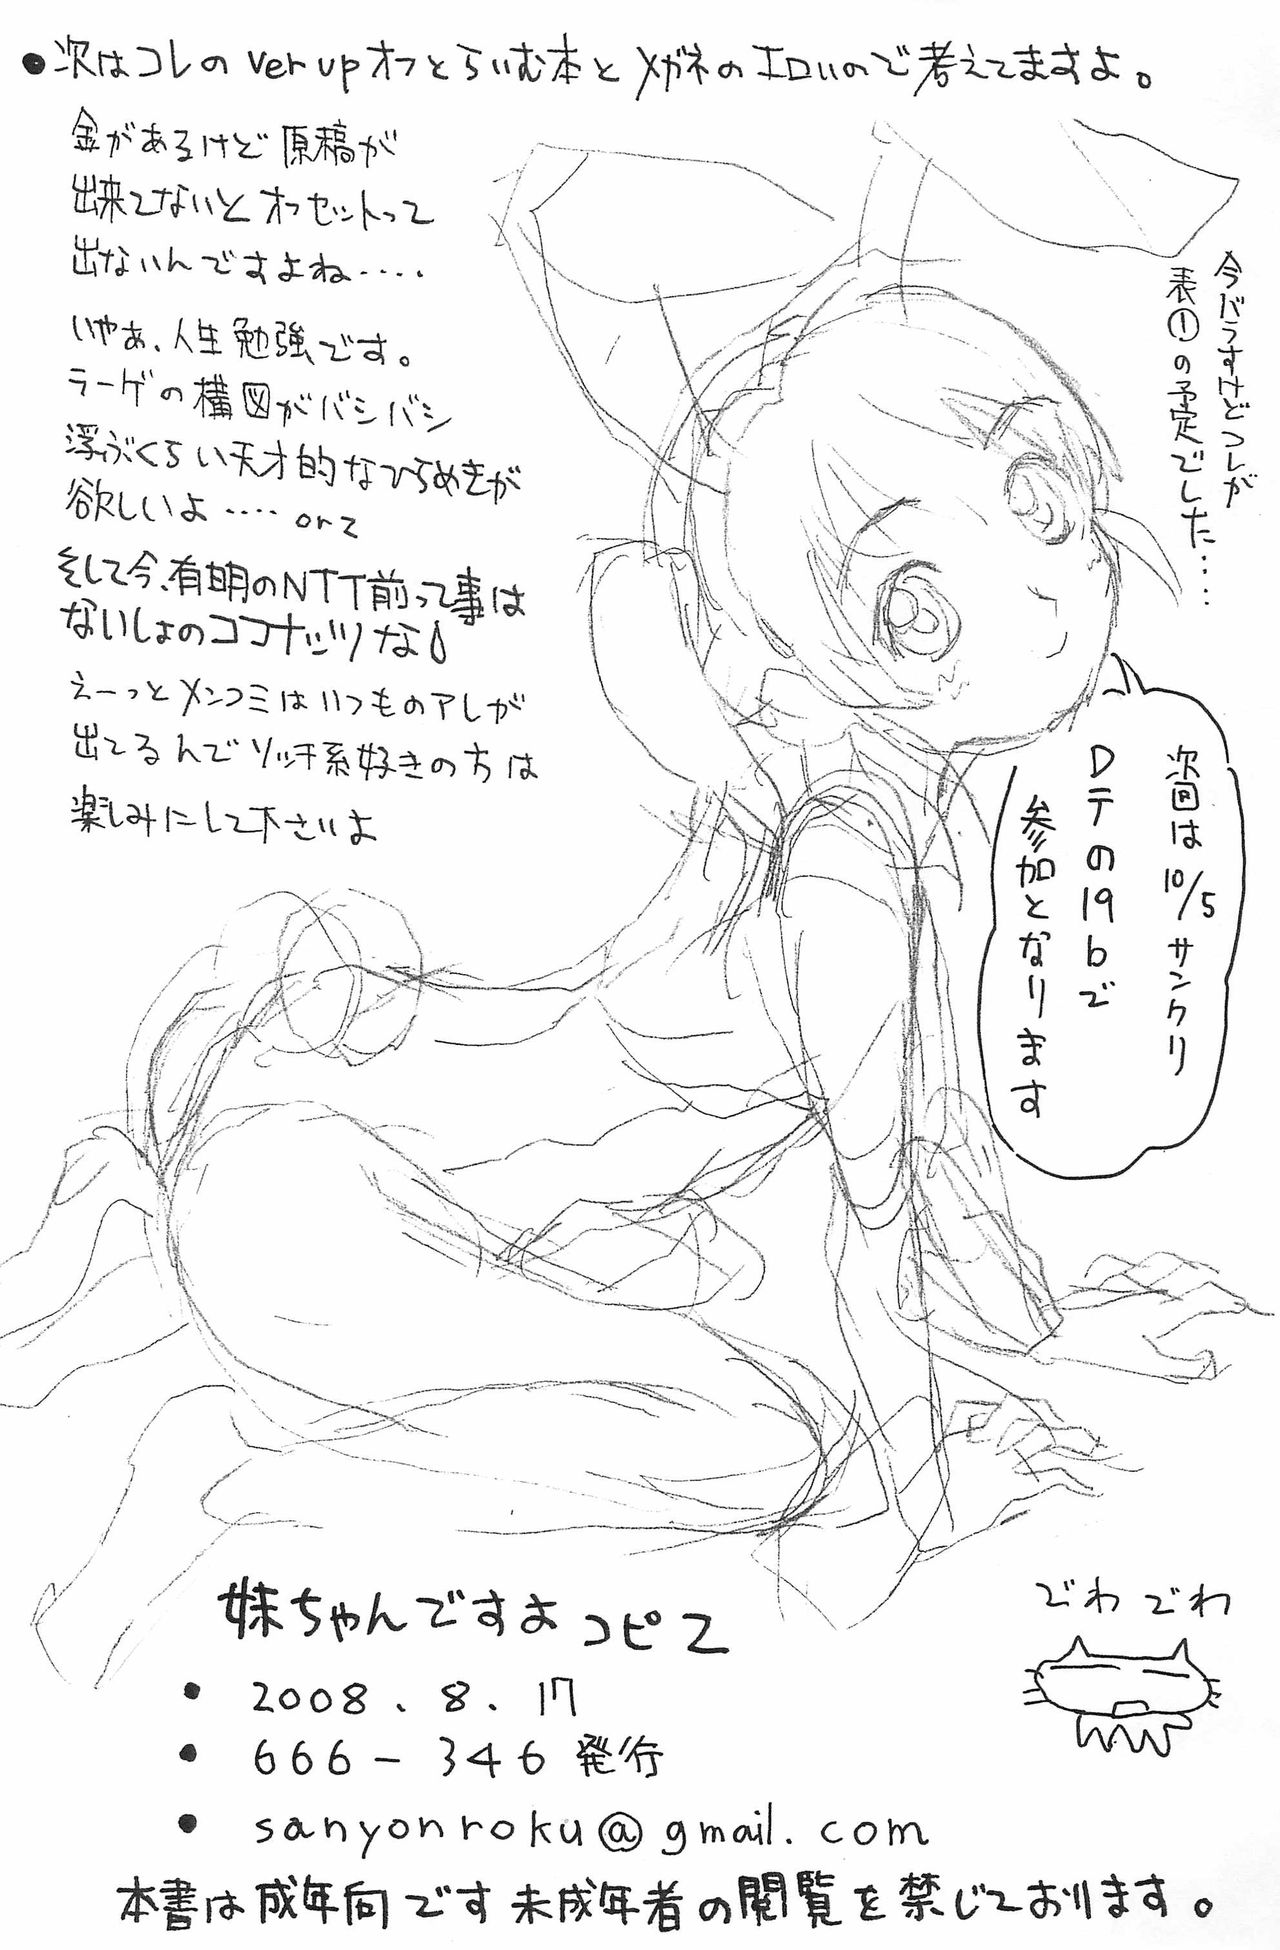 ●次はコレのver upオフとらいむ本とメガネのエロいので考えてますよ。
金があるけど原稿が
出来てないとオフセットって
出ないんですよね‥‥
いやぁ、人生勉強です。
ラーゲの構図がバシバシ
浮ぶくらい天才的なひらめきが
欲しいよ‥‥orz
そして今、有明のNTT前って事は
ないしょのココナッツな
えーっとメンコミはいつものアレが
出てるんでソッチ系好きの方は
楽しみにして下さいよ
今バラすけどコレが
表①の予定でした‥‥
次回は10/5サンクリ
Dテの19bで
参加となります
妹ちゃんですよ コピて
・ 2008.8.17
・ 666-346発行
・ sanyonroku@gmail.com
でわでわ
本書は成年向です未成年者の閲覧を禁じております。